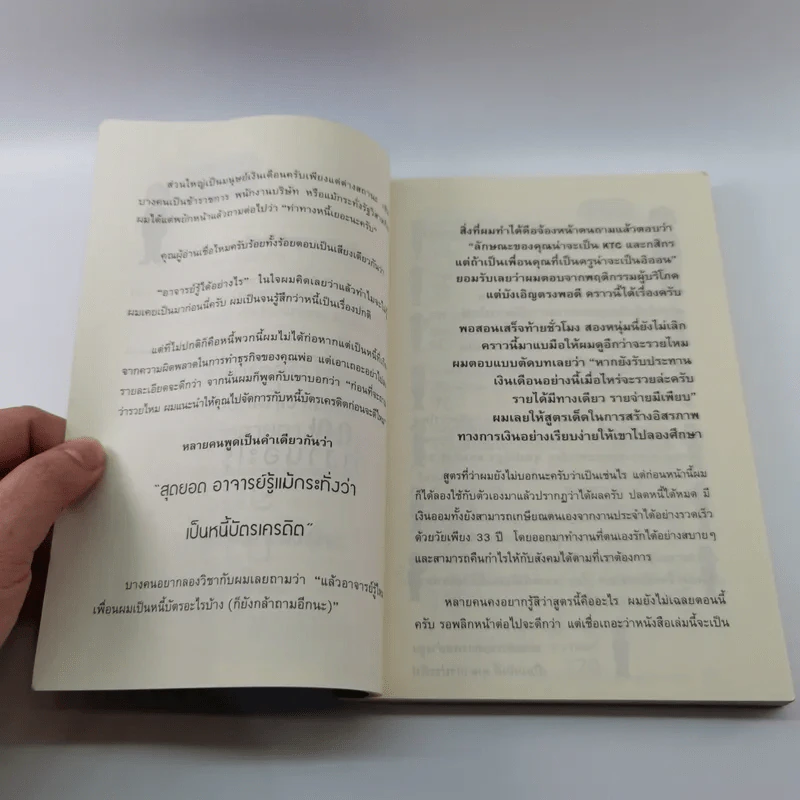 ส่วนใหญ่เป็นมนุษย์เงินเดือนครับเพียงแต่ต่างสถานะ
บางคนเป็นข้าราชการ พนักงานบริษัท หรือแม้กระทั่งรัฐวิสาหกิจ
ผมได้แต่พยักหน้าแล้วถามต่อไปว่า “ทำทางหนี้เยอะนะครับ”
คุณผู้อ่านเชื่อไหมครับร้อยทั้งร้อยตอบเป็นเสียงเดียวกันว่า
“อาจารย์รู้ได้อย่างไร” ในใจผมคิดเลยว่าแล้วทำไมจะไม่รู้
ผมเคยเป็นมาก่อนนี่ครับ ผมเป็นจนรู้สึกว่าหนี้เป็นเรื่องปกติ
แต่ที่ไม่ปกติก็คือหนี้พวกนี้ผมไม่ได้ก่อหากแต่เป็นหนี้ที่
จากความผิดพลาดในการทำธุรกิจของคุณพ่อ แต่เอาเถอะอย่า
รายละเอียดจะดีกว่า จากนั้นผมก็พูดกับเขาบอกว่า “ก่อนที่จะ
ว่ารวยไหม ผมแนะนำให้คุณไปจัดการกับหนี้บัตรเครดิตก่อนจะดีไหม”
หลายคนพูดเป็นคำเดียวกันว่า
“สุดยอด อาจารย์รู้แม้กระทั่งว่า
เป็นหนี้บัตรเครดิต”
บางคนอยากลองวิชากับผมเลยถามว่า “แล้วอาจารย์รู้ไหม
เพื่อนผมเป็นหนี้บัตรอะไรบ้าง (ก็ยังกล้าถามอีกนะ)”
สิ่งที่ผมทำได้คือจ้องหน้าคนถามแล้วตอบว่า
“ลักษณะของคุณน่าจะเป็น KTC และกสิกร
แต่ถ้าเป็นเพื่อนคุณที่เป็นครูน่าจะเป็นอิออน”
ยอมรับเลยว่าผมตอบจากพฤติกรรมผู้บริโภค
แต่บังเอิญตรงพอดี คราวนี้ได้เรื่องครับ
พอสอนเสร็จท้ายชั่วโมง สองหนุ่มนี่ยังไม่เลิก
คราวนี้มาแบมือให้ผมดูอีกว่าจะรวยไหม
ผมตอบแบบตัดบทเลยว่า “หากยังรับประทาน
เงินเดือนอย่างนี้เมื่อไหร่จะรวยล่ะครับ
รายได้มีทางเดียว รายจ่ายมีเพียบ”
ผมเลยให้สูตรเด็ดในการสร้างอิสรภาพ
ทางการเงินอย่างเรียบง่ายให้เขาไปลองศึกษา
สูตรที่ว่าผมยังไม่บอกนะครับว่าเป็นเช่นไร แต่ก่อนหน้านี้ผม
ก็ได้ลองใช้กับตัวเองมาแล้วปรากฏว่าได้ผลครับ ปลดหนี้ได้หมด มี
เงินออมทั้งยังสามารถเกษียณตนเองจากงานประจำได้อย่างรวดเร็ว
ด้วยวัยเพียง 33 ปี โดยออกมาทำงานที่ตนเองรักได้อย่างสบายๆ
และสามารถคืนกำไรให้กับสังคมได้ตามที่เราต้องการ
หลายคนคงอยากรู้สิว่าสูตรนี้คืออะไร ผมยังไม่เฉลยตอนนี้
ครับ รอพลิกหน้าต่อไปจะดีกว่า แต่เชื่อเถอะว่าหนังสือเล่มนี้จะเป็น